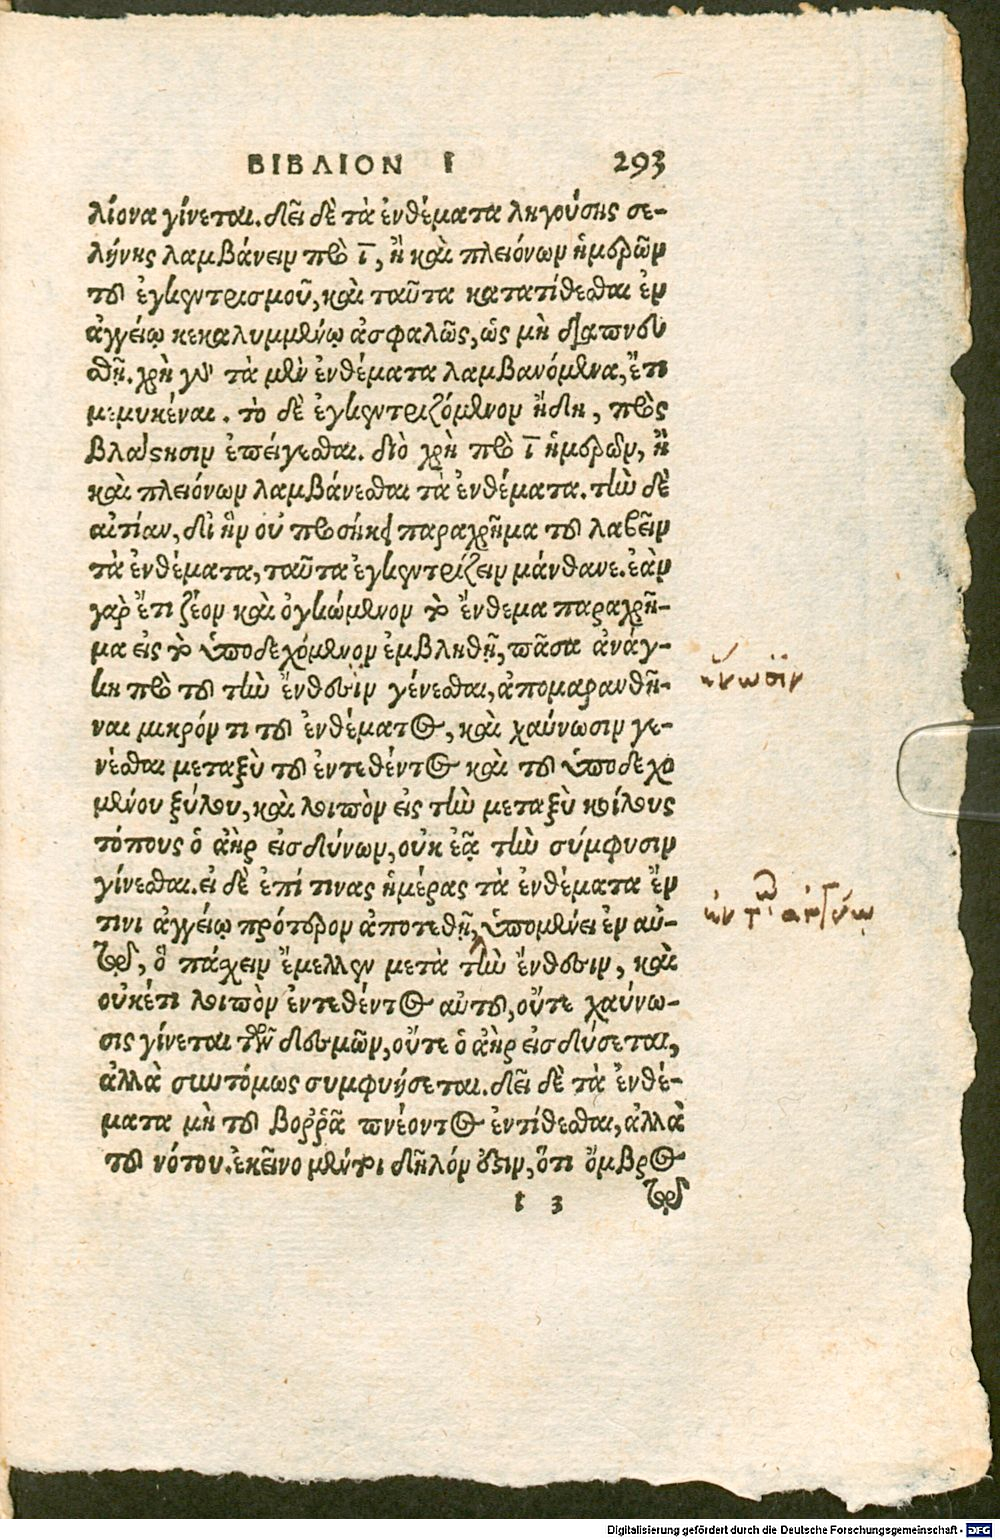 ΒΙΒΛΙΟΝ Ι 293
λίονα γίνεται. δεῖ δὲ τὰ ἐνθέματα ληγούσης σε-
λήνης λαμβάνειν πρὸ ῑ, ἢ καὶ πλειόνων ἡμερῶν
τοῦ ἐγκεντρισμοῦ, καὶ ταῦτα κατατίθεσθαι ἐν
ἀγγείῳ κεκαλυμμένῳ ἀσφαλῶς, ὡς μὴ διαπνευ
σθῇ. χρὴ γὰρ τὰ μὲν ἐνθέματα λαμβανόμενα, ἔτι
μεμυκέναι. τὸ δὲ ἐγκεντριζόμενον ἤδη, πρὸς
βλάστησιν ἐπείγεσθαι. διὸ χρὴ πρὸ ῑ ἡμερῶν, ἢ
καὶ πλειόνων λαμβάνεσθαι τὰ ἐνθέματα. τὴν δὲ
αἰτίαν, δι' ἣν οὐ προσήκει παραχρῆμα τοῦ λαβεῖν
τὰ ἐνθέματα, ταῦτα ἐγκεντρίζειν μάνθανε. ἐὰν
γὰρ ἔτι ζέον καὶ ὀγκώμενον τὸ ἔνθεμα παραχρῆ-
μα εἰς τὸ ὑποδεχόμενον ἐμβληθῇ, πᾶσα ἀνάγ-
κη πρὸ τοῦ τὴν ἔνθεσιν γένεσθαι, ἀπομαρανθῆ-
ναι μικρόν τι τοῦ ἐνθέματος, καὶ χαύνωσιν γε-
νέσθαι μεταξὺ τοῦ ἐντεθέντος καὶ τοῦ ὑποδεχο
μένου ξύλου, καὶ λοιπὸν εἰς τὴν μεταξὺ κοίλους
τόπους ὁ ἀὴρ εἰσδύνων, οὐκ ἐᾷ τὴν σύμφυσιν
γίνεσθαι. εἰ δὲ ἐπί τινας ἡμέρας τὰ ἐνθέματα ἔν
τινι ἀγγείῳ πρότερον ἀποτεθῇ, ὑπομένει ἐν αὐ-
τῷ, ὃ πάσχειν ἔμελλεν μετὰ τὴν ἔνθεσιν, καὶ
οὐκέτι λοιπὸν ἐντεθέντος αὐτοῦ, οὔτε χαύνω-
σις γίνεται τῶν δεσμῶν, οὔτε ὁ ἀὴρ εἰσδύσεται,
ἀλλὰ συντόμως συμφυήσεται. δεῖ δὲ τὰ ἐνθέ-
ματα μὴ τοῦ βοῤῥᾶ πνέοντος ἐντίθεσθαι, ἀλλὰ
τοῦ νότου. ἐκεῖνο μέντοι δῆλόν ἐστιν, ὅτι ὄμβρος
t 3 τῷ
ἕνωσιν
Digitalisierung gefördert durch die Deutsche Forschungsgemeinschaft - DFG